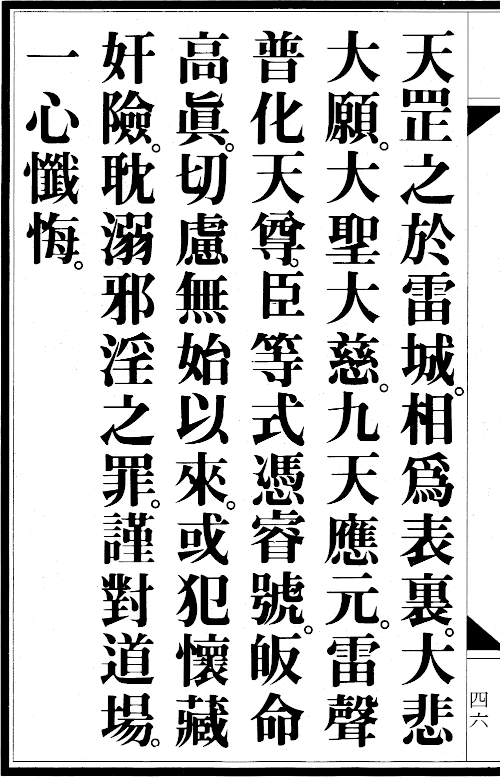 天罡之於雷城。相爲表裏。大悲
大願。大聖大慈。九天應元。雷聲
普化天尊。臣等式憑睿號。皈命
高眞。切慮無始以來。或犯懷藏
奸險。耽溺邪淫之罪。謹對道場。
一心懺悔。
四六